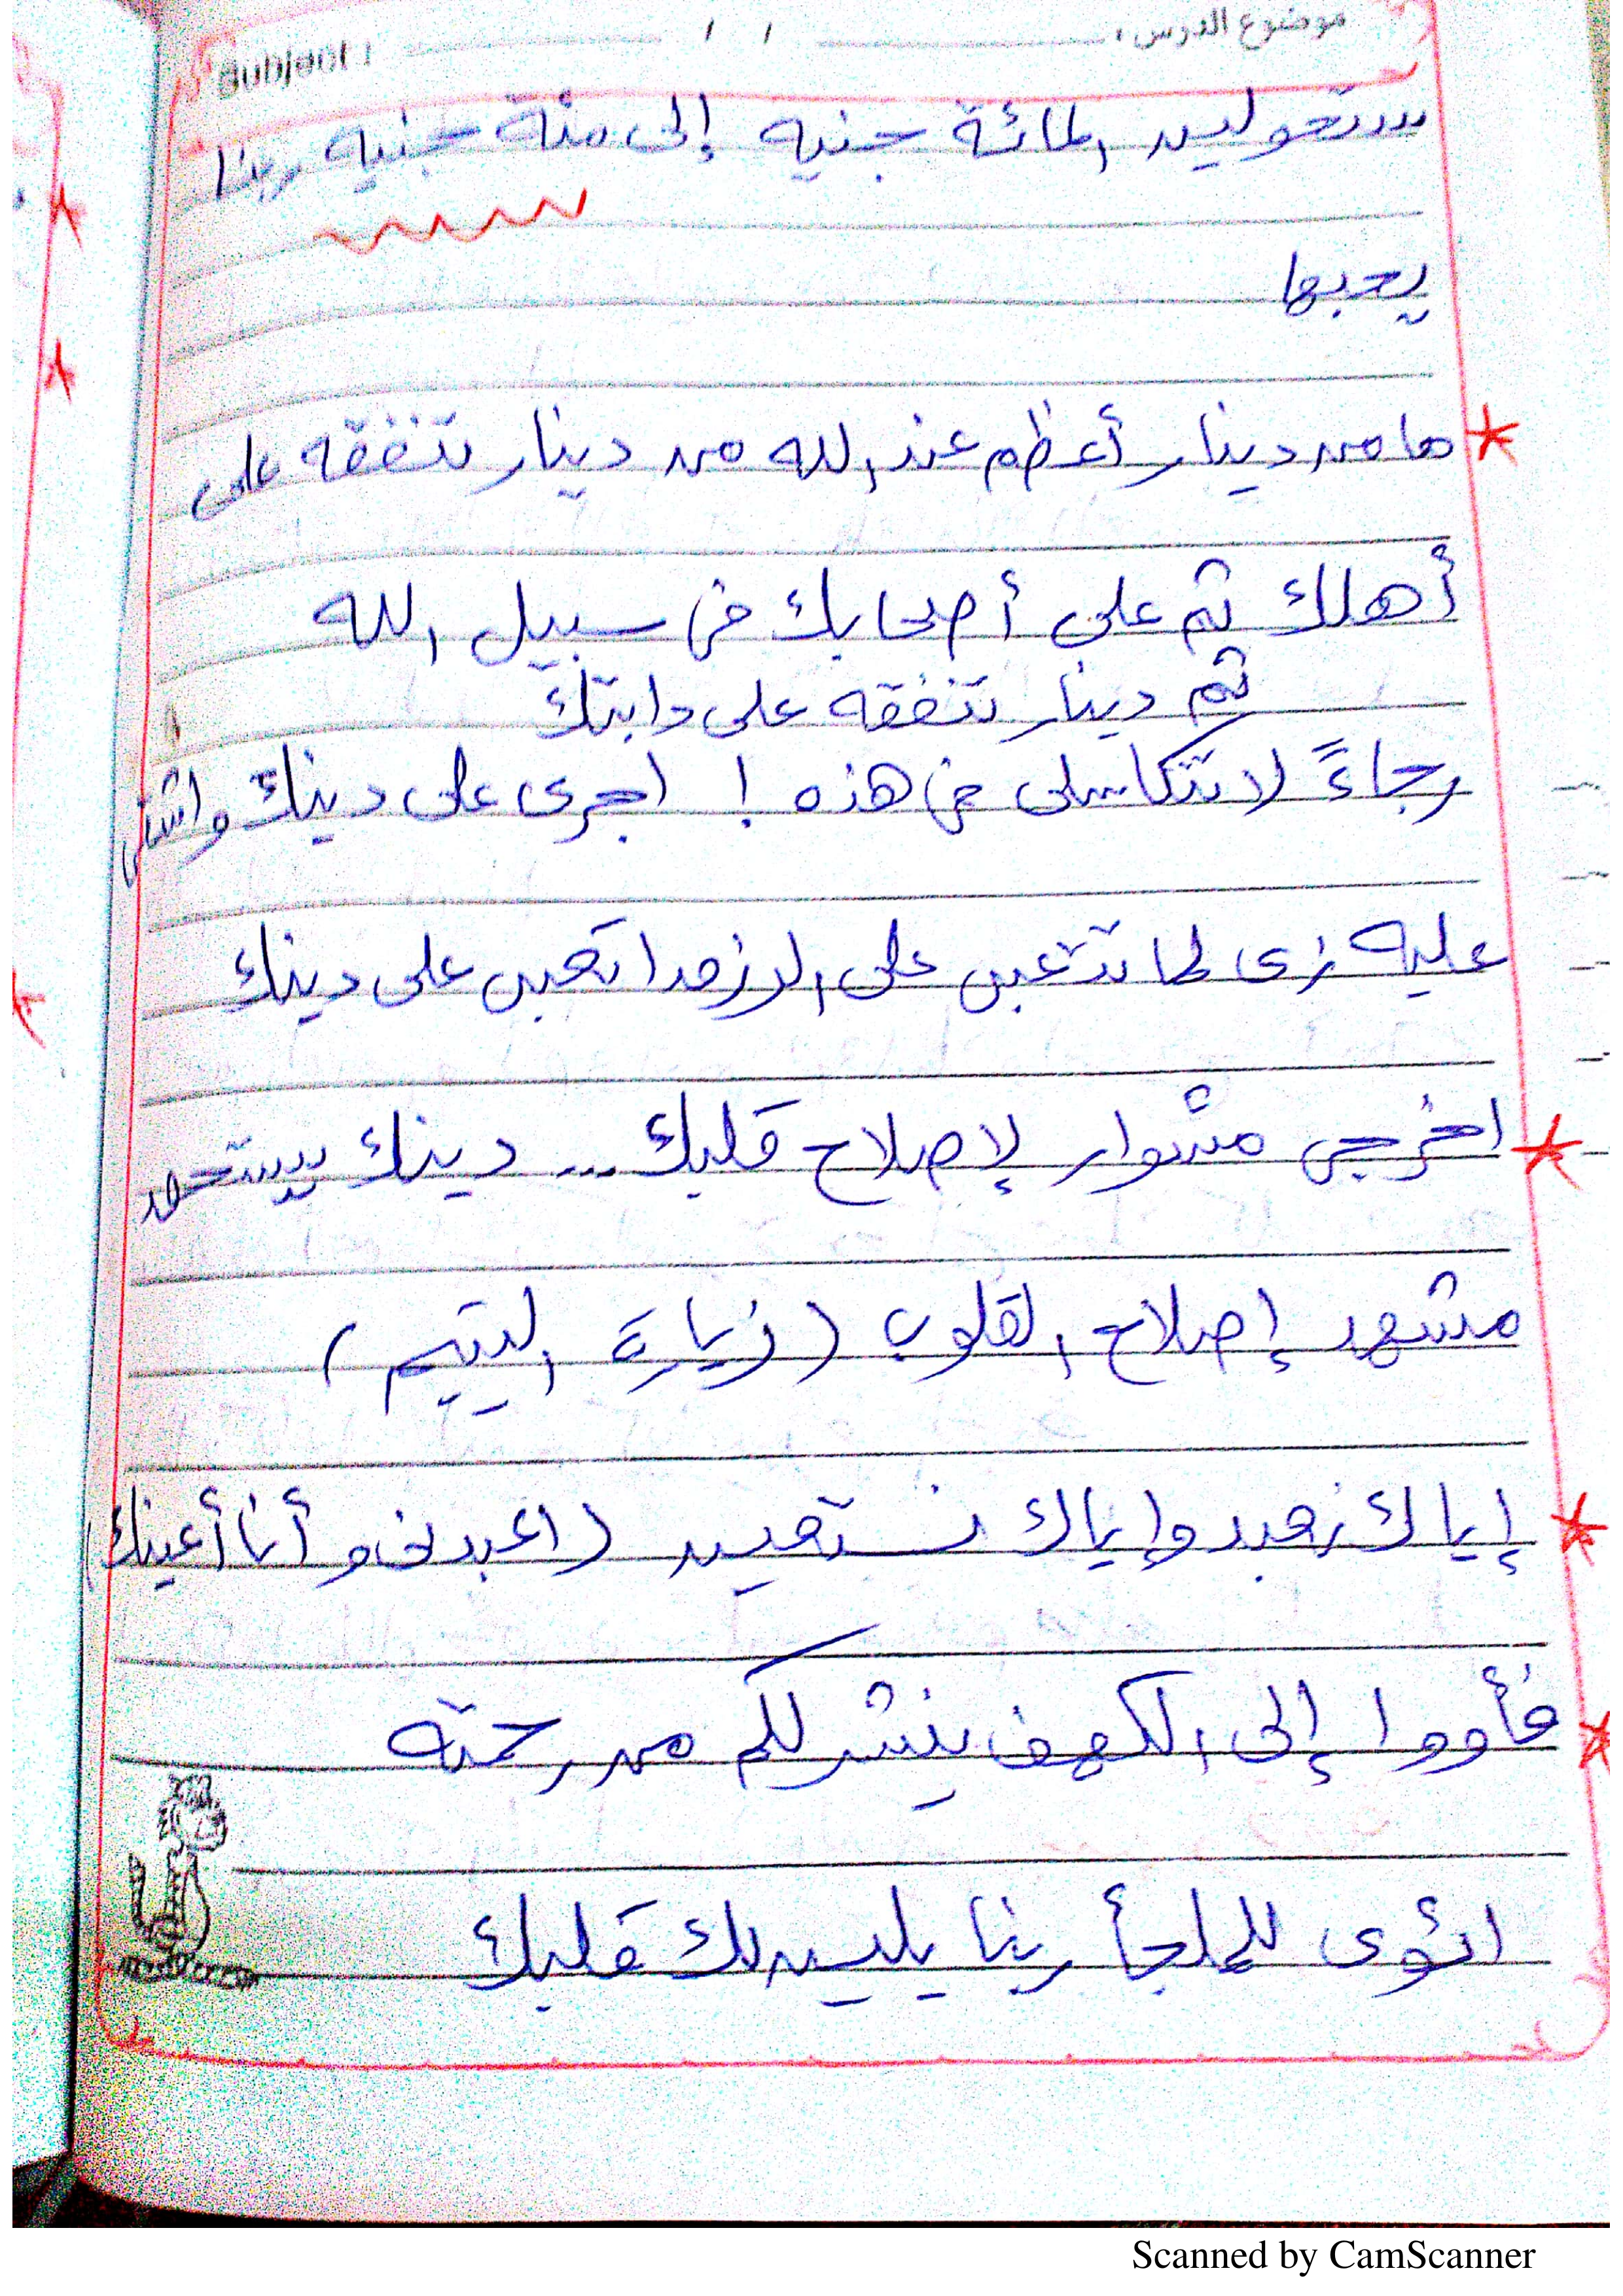 موضوع الدرس : / / Subject :
ستحولين المائة جنيه إلى مئة جنيه ربنا
يحبها
ما من دينار أعظم عند الله من دينار تنفقه على
أهلك ثم على أصحابك في سبيل الله
ثم دينار تنفقه على دابتك
رجاءً لا تتكاسلى في هذه ! اجرى على دينك واشتغلى
عليه زى لما تتعبى على الرزق اتعبى على دينك
اخرجى مشوار لإصلاح قلبك ... دينك يستحق
مشهد إصلاح القلوب (زيارة اليتيم)
إياك نعبد وإياك نستعين (اعبدنى و أنا أعينك)
فأووا إلى الكهف ينشر لكم من رحمته
ائوى للملجأ ربنا يلين لك قلبك
Scanned by CamScanner